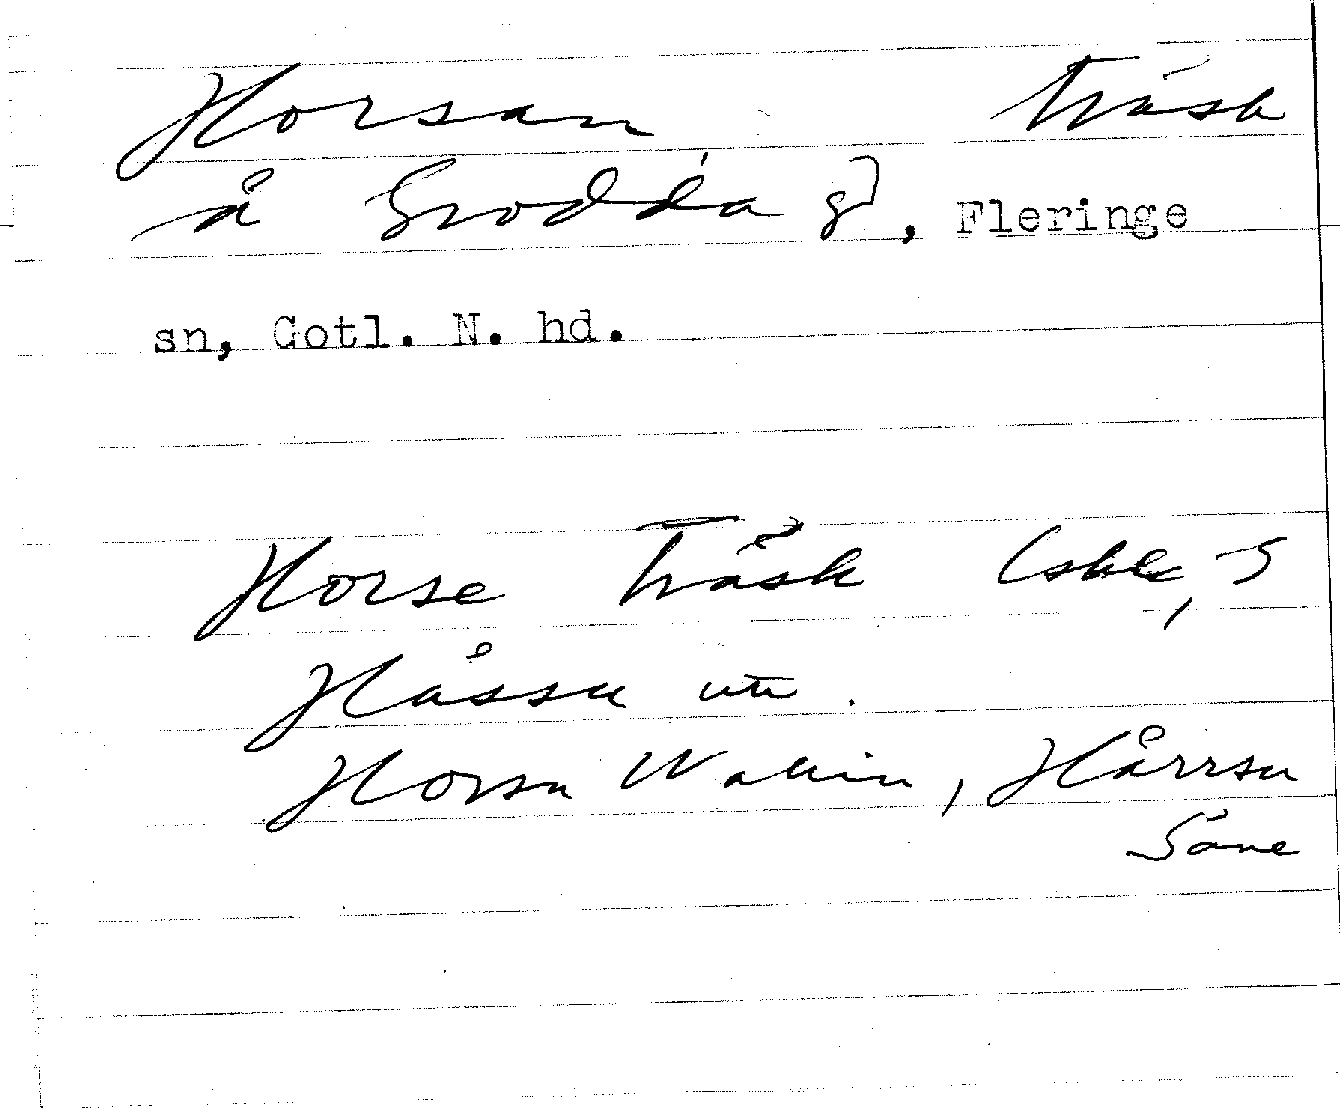 Horsan träsk
å Grodda g, Fleringe
sn, Gotl. N. hd.
Horse Träsk
Håssu
Horsu Wallin, Hårrsu
Säve